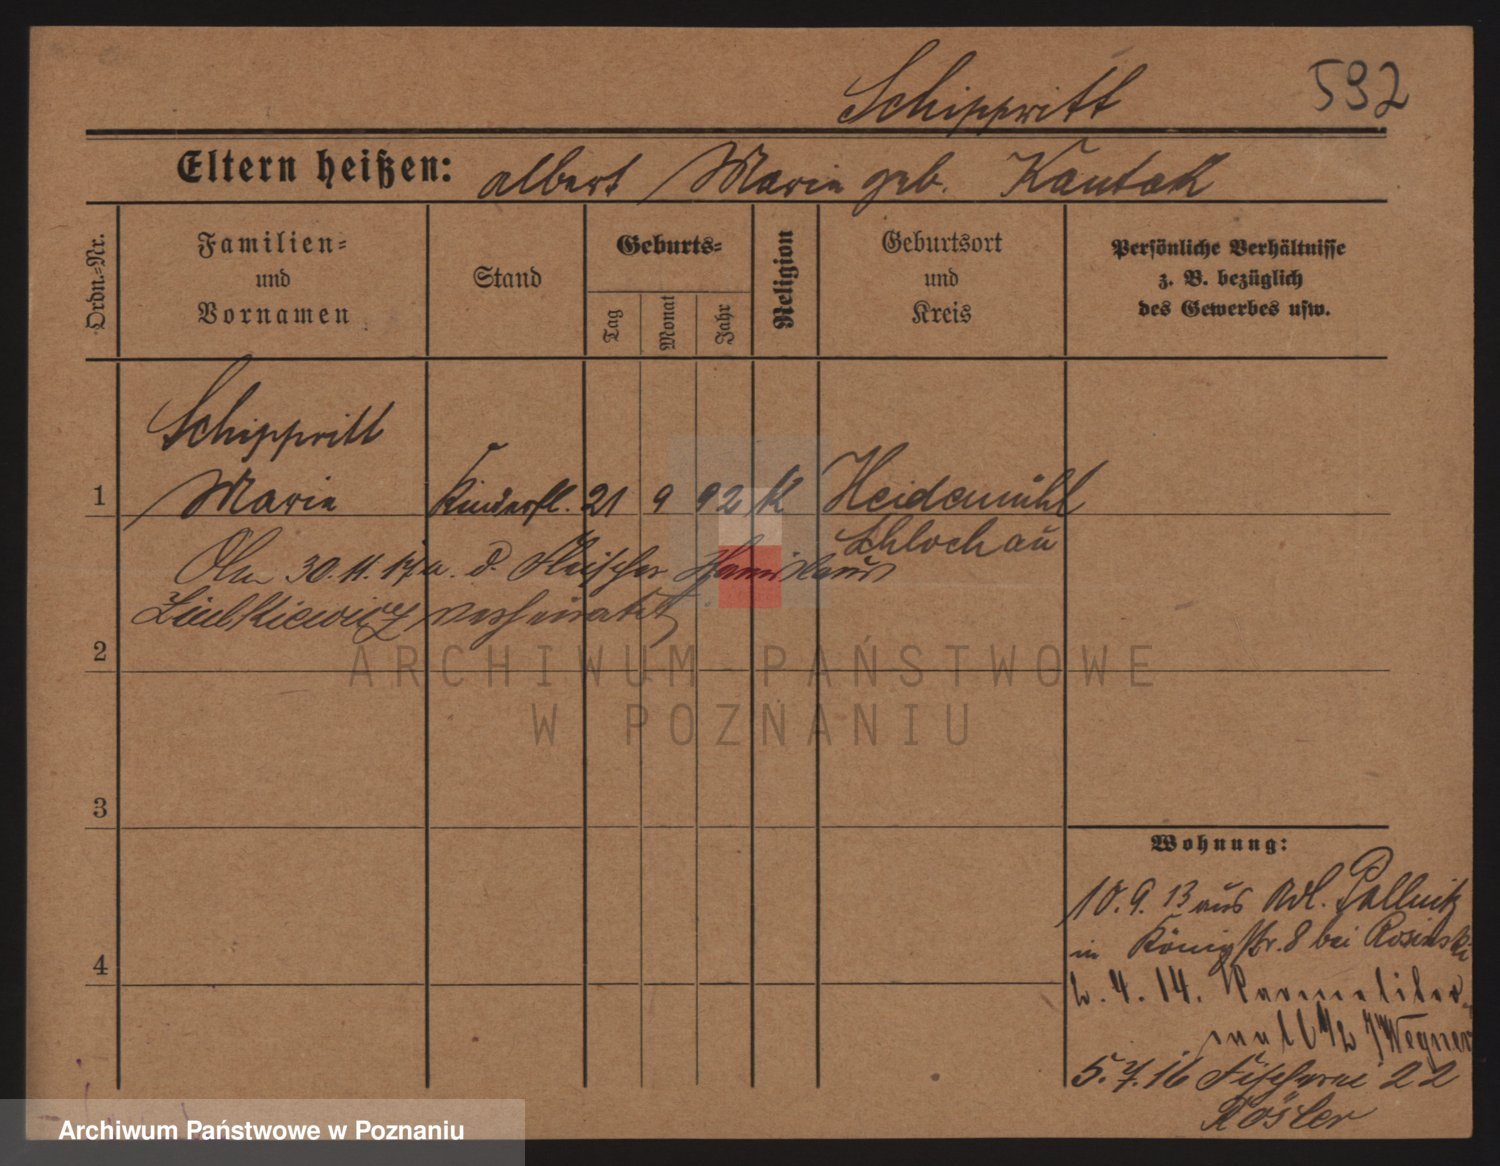 592
Schippritt
Eltern heißen: Albert / Marie geb. Kautak
Ordn.=Nr.
Familien=
und
Vornamen
Stand
Geburts=
Tag
Monat
Jahr
Religion
Geburtsort
und
Kreis
Persönliche Verhältnisse
z. B. bezüglich
des Gewerbes usw.
Schippritt
1 Marie Kinderfl. 21 9 92 K Heidemühl
Schlochau
Am 30.11.17 m. d. Fleischer Stanislaus
verheiratet
2
3
4
Wohnung:
10.9.13 aus Adl.
in Königstr. 8 bei Rosinski
2.4.14. Karmeliter
wall Wegner
5.7.16 Fischerei 22
Rösler
ARCHIWUM PAŃSTWOWE
W POZNANIU
Archiwum Państwowe w Poznaniu